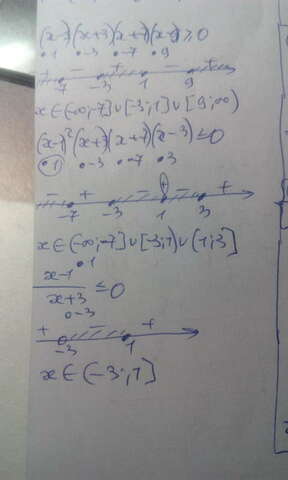 (x-1)(x+3)(x+7)(x-9)≥0
•1 •-3 •-7 •9
+ - + - +
-7 -3 1 9
x∈(-∞;-7]∪[-3;1]∪[9;∞)
(x-1)²(x+3)(x+7)(x-3)≤0
•1 •-3 •-7 •3
- + - - +
-7 -3 1 3
x∈(-∞;-7]∪[-3;1)∪(1;3]
x-1 •1
x+3 ≤0
∘-3
+ - +
-3 1
x∈(-3;1]